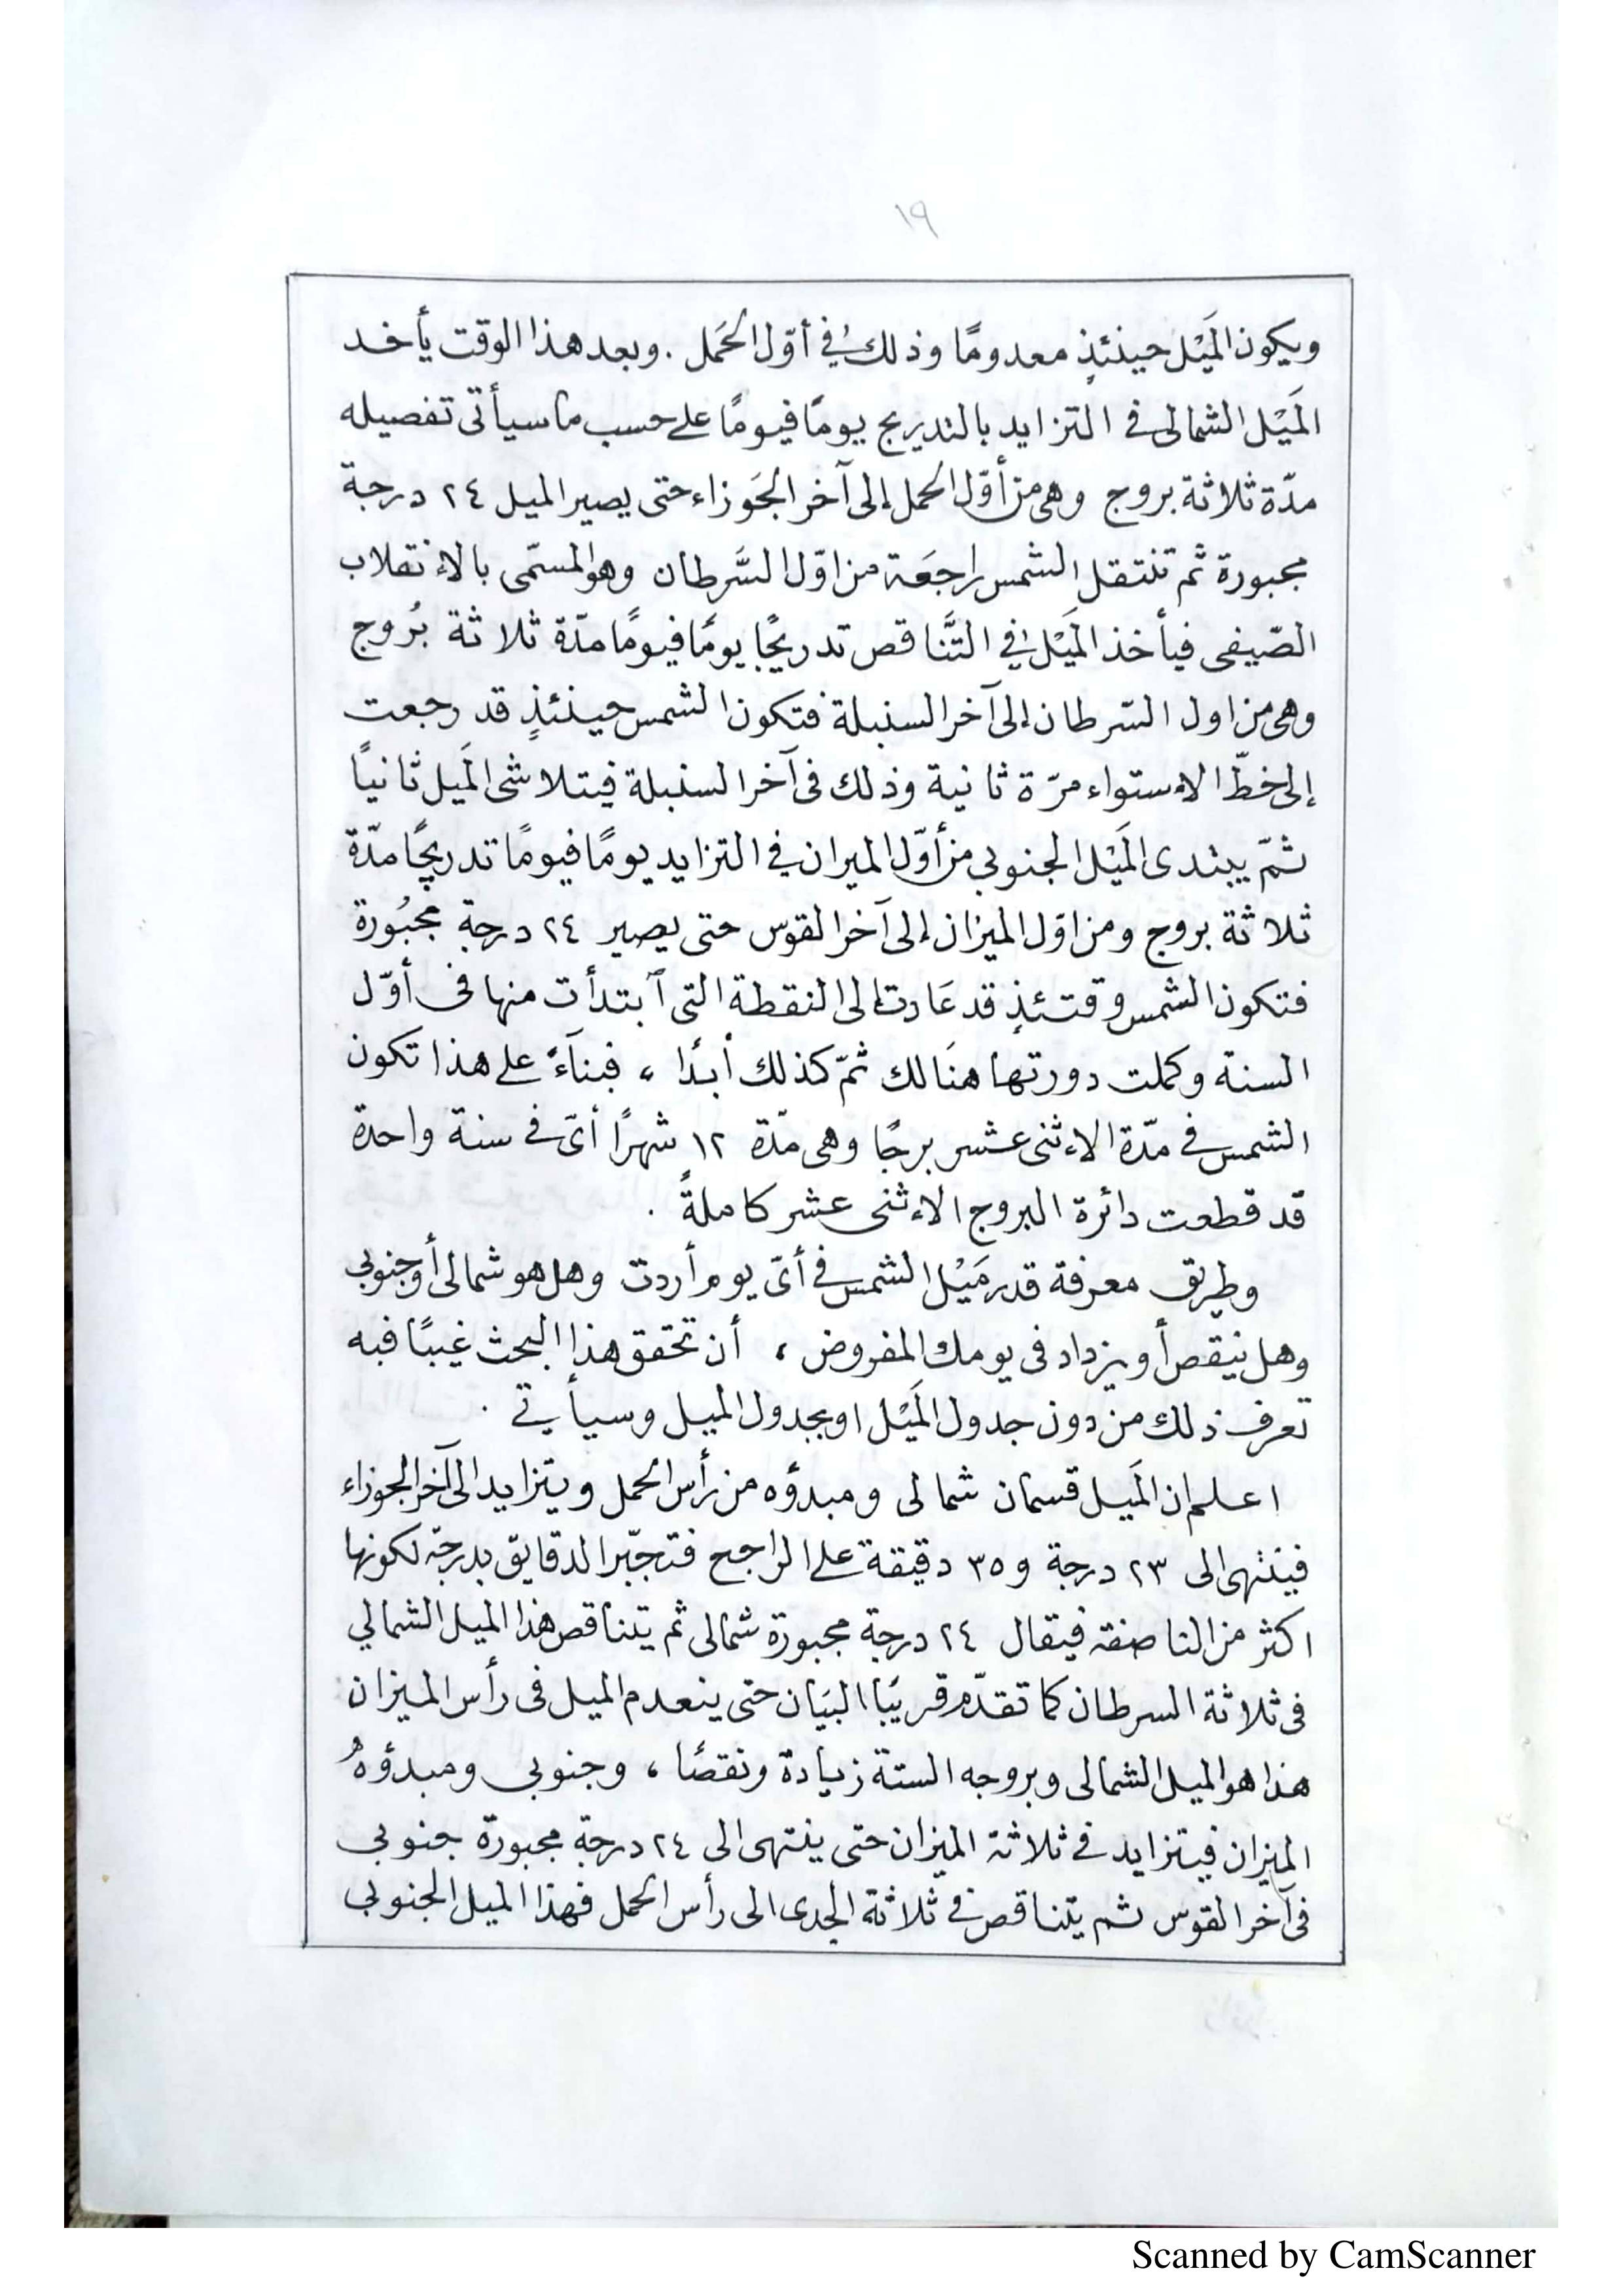 ١٩
ويكون المَيْل حينئذٍ معدومًا وذلك في أوّل الحَمل . وبعد هذا الوقت يأخد
المَيْل الشمالى فى التزايد بالتدريج يومًا فيومًا على حسب ما سيأتى تفصيله
مدّة ثلاثة بروج وهى من أوّل الحمل إلى آخر الجَوزاء حتى يصير الميل ٢٤ درجة
مجبورة ثم تنتقل الشمس راجعَة من اوّل السَّرطان وهو المسمّى بالإنقلاب
الصّيفى فيأخذ المَيْل في التَّناقص تدريجًا يومًا فيومًا مدّة ثلاثة بُروج
وهى من اول السّرطان إلى آخر السنبلة فتكون الشمس حينئذٍ قد رجعت
إلى خطّ الإستواء مرّة ثانية وذلك فى آخر السنبلة فيتلاشى المَيل ثانيًا
ثمّ يبتدى المَيْل الجنوبي من أوّل الميزان في التزايد يومًا فيومًا تدريجًا مدّة
ثلاثة بروج ومن اوّل الميزان إلى آخر القوس حتى يصير ٢٤ درجة مجبُورة
فتكون الشمس وقتئذٍ قد عَادت إلى النقطة التى ٱبتدأت منها فى أوّل
السنة وكملت دورتها هنَالك ثمّ كذلك أبدًا ، فبنآءً على هذا تكون
الشمس في مدّة الإثنى عشر برجًا وهى مدّة ١٢ شهرًا أىّ فى سنة واحدة
قد قطعت دائرة البروج الإثنى عشر كاملةً .
وطريق معرفة قدر مَيْل الشمس في أىّ يوم أردت وهل هو شمالى أو جنوبي
وهل ينقص أو يزداد فى يومك المفروض ، أن تحقق هذا البحث غيبًا فبه
تعرف ذلك من دون جدول المَيْل او بجدول الميل وسيأتي .
اعلم ان المَيل قسمان شمالى ومبدؤه من رأس الحمل ويتزايد الى آخر الجوزاء
فينتهى الى ٢٣ درجة و ٣٥ دقيقة على الراجح فتجبّر الدقايق بدرجة لكونها
اكثر من الناصفة فيقال ٢٤ درجة مجبورة شمالى ثم يتناقص هذا الميل الشمالي
فى ثلاثة السرطان كما تقدّم قريبًا البيَان حتى ينعدم الميل فى رأس الميزان
هذا هو الميل الشمالى وبروجه الستة زيادة ونقصًا ، وجنوبي ومبدؤهُ
الميزان فيتزايد فى ثلاثة الميزان حتى ينتهى الى ٢٤ درجة مجبورة جنوبي
فى آخر القوس ثم يتناقص في ثلاثة الجدى الى رأس الحمل فهذا الميل الجنوبي
Scanned by CamScanner